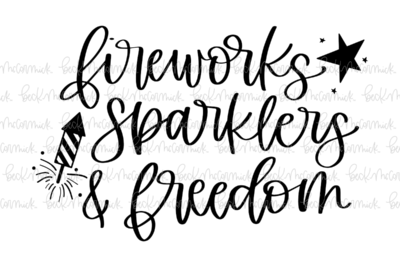 fireworks
sparklers
& freedom